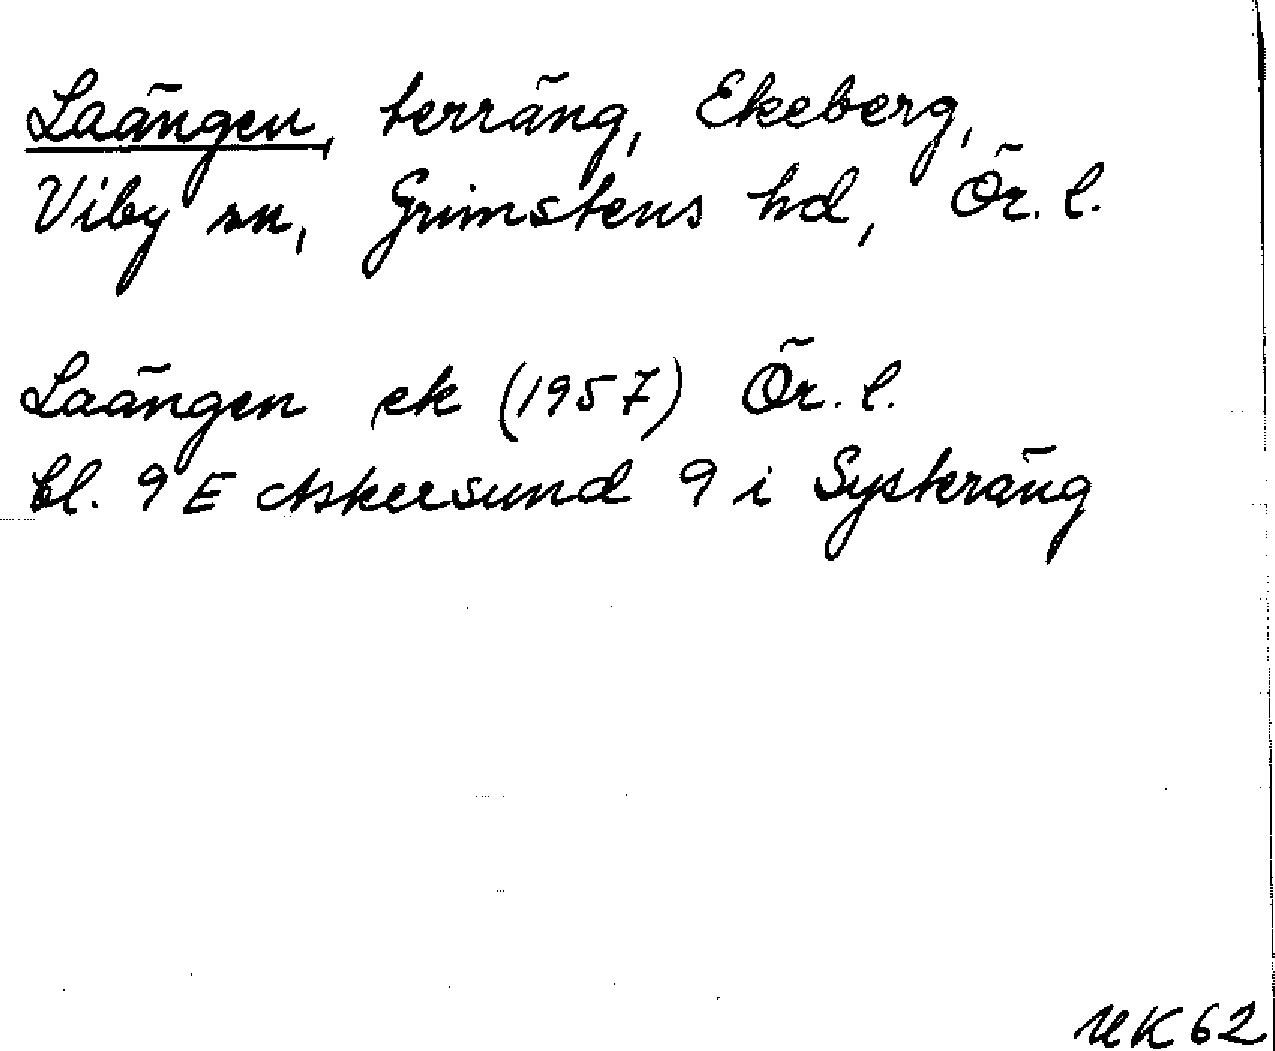 Laängen, terräng, Ekeberg,
Viby sn, Grimstens hd, Ör. l.
Laängen ek (1957) Ör. l.
bl. 9 E Askersund 9 i Systeräng
UK 62